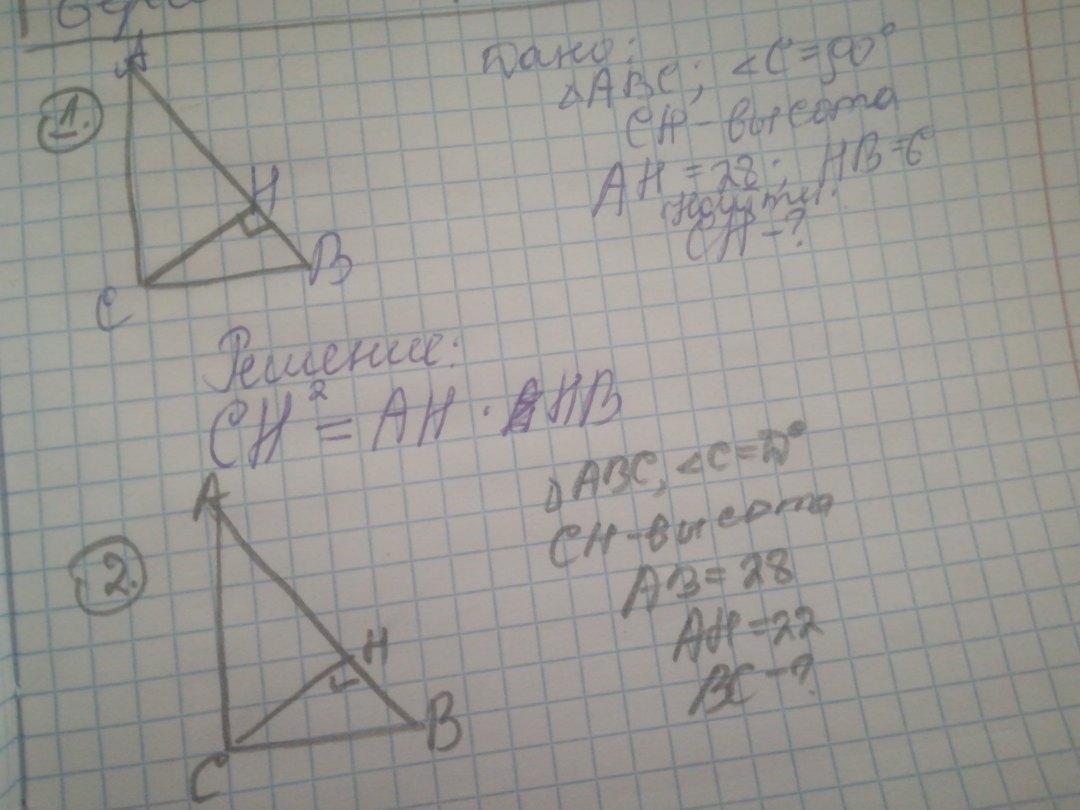 1.
A
H
B
C
Дано:
△ABC; ∠C=90°
CH - высота
AH = 28; HB=6
Найти:
CH - ?
Решение:
CH² = AH · HB
2.
A
H
B
C
△ABC, ∠C=
CH - высота
AB = 28
AH = 22
BC - ?